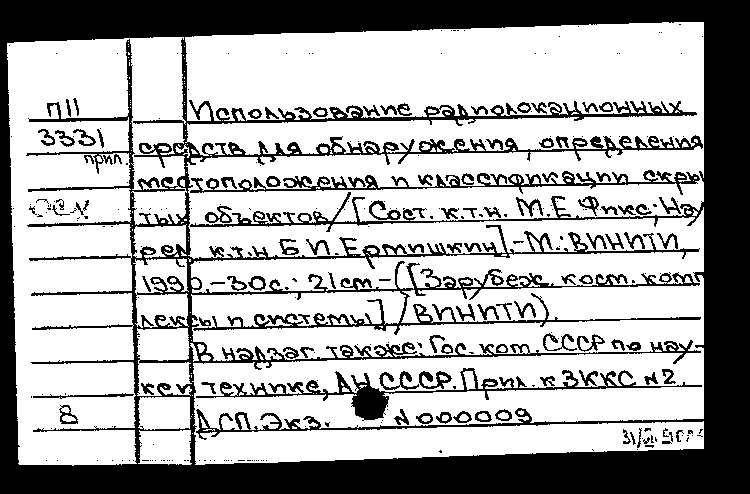 П11
3331
прил
8
Использование радиолокационных
средств для обнаружения, определения
местоположения и классификации скры
тых объектов/[Сост. к.т.н. М.Е. Фикс; Нау
ред к.т.н. Б.И. Ермишкин].-М.: ВИНИТИ,
1990.-30с.; 21см.-([Зарубеж. косм. комп
лексы и системы]/ВИНИТИ).
В надзаг. также: Гос. ком. СССР по нау-
ке и технике, АН СССР. Прил. к ЗККС №2.
ДСП. Экз. N000009